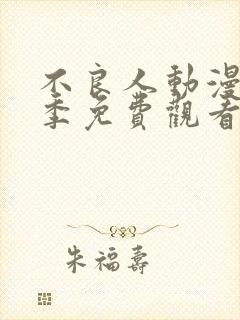 不良人動漫
季免費觀看
朱福壽